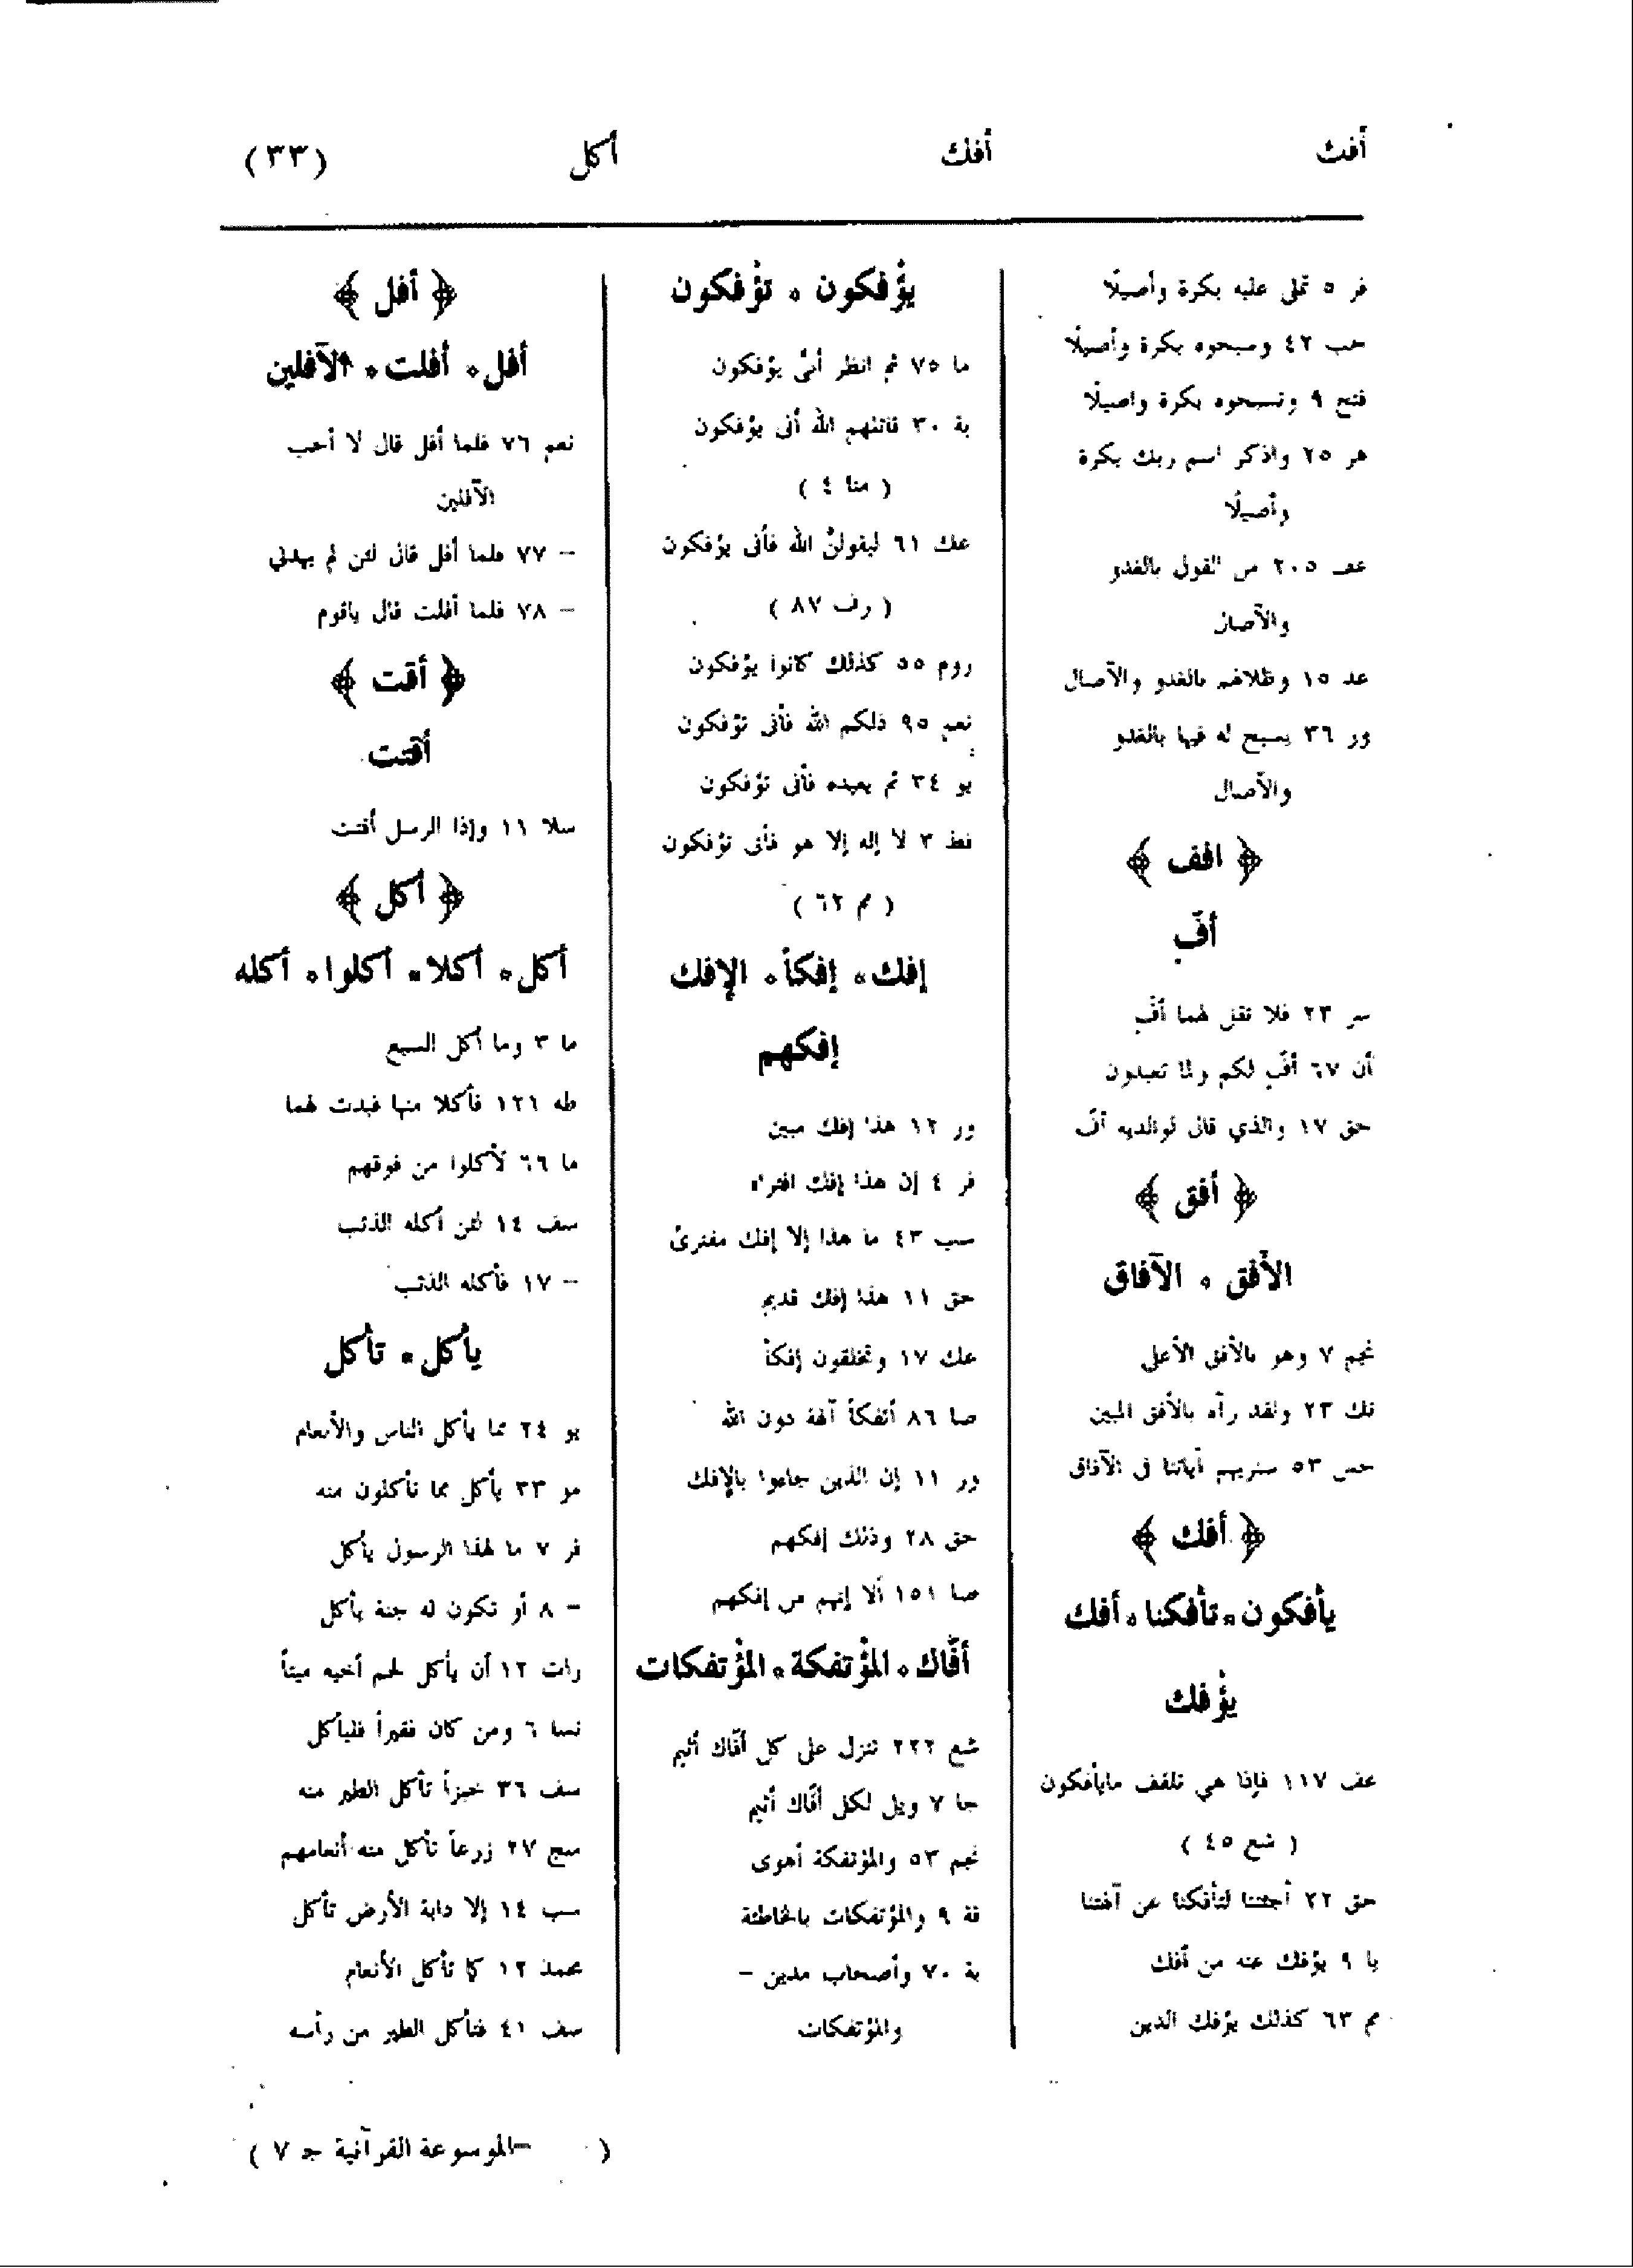 أفث أفك أكل (٣٣)
فر ٥ تملى عليه بكرة وأصيلًا
حب ٤٢ وسبحوه بكرة وأصيلًا
فتح ٩ وتسبحوه بكرة وأصيلًا
هر ٢٥ واذكر اسم ربك بكرة
وأصيلًا
عف ٢٠٥ من القول بالغدو
والآصال
عد ١٥ وظلالهم بالغدو والآصال
ور ٣٦ يسبح له فيها بالغدو
والآصال
﴿ افف ﴾
أفّ
سر ٢٣ فلا تقل لهما أفّ
أن ٦٧ أفّ لكم ولما تعبدون
حق ١٧ والذي قال لوالديه أفّ
﴿ أفق ﴾
الأفق ٠ الآفاق
نجم ٧ وهو بالأفق الأعلى
تك ٢٣ ولقد رآه بالأفق المبين
حس ٥٣ سنريهم آياتنا في الآفاق
﴿ أفك ﴾
يأفكون ٠ تأفكنا ٠ أفك
يؤفك
عف ١١٧ فإذا هي تلقف مايأفكون
( شع ٤٥ )
حق ٢٢ أجئتنا لتأفكنا عن آلهتنا
يا ٩ يؤفك عنه من أفك
مم ٦٣ كذلك يؤفك الذين
يؤفكون ٠ تؤفكون
ما ٧٥ ثم انظر أنىّ يؤفكون
بة ٣٠ قاتلهم الله أنى يؤفكون
( منا ٤ )
عك ٦١ ليقولنّ الله فأنى يؤفكون
( رف ٨٧ )
روم ٥٥ كذلك كانوا يؤفكون
نعم ٩٥ ذلكم الله فأنى تؤفكون
يو ٣٤ ثم يعيده فأنى تؤفكون
فط ٣ لا إله إلا هو فأنى تؤفكون
( مم ٦٢ )
إفك ٠ إفكاً ٠ الإفك
إفكهم
ور ١٢ هذا إفك مبين
فر ٤ إن هذا إفك افتراه
سب ٤٣ ما هذا إلا إفك مفترىً
حق ١١ هذا إفك قديم
عك ١٧ وتخلقون إفكاً
صا ٨٦ أئفكاً آلهة دون الله
ور ١١ إن الذين جاءوا بالإفك
حق ٢٨ وذلك إفكهم
صا ١٥١ ألا إنهم من إفكهم
أفّاك ٠ المؤتفكة ٠ المؤتفكات
شع ٢٢٢ تنزل على كل أفّاك أثيم
جا ٧ ويل لكل أفّاك أثيم
نجم ٥٣ والمؤتفكة أهوى
قة ٩ والمؤتفكات بالخاطئة
بة ٧٠ وأصحاب مدين –
والمؤتفكات
﴿ أفل ﴾
أفل ٠ أفلت ٠ الآفلين
نعم ٧٦ فلما أفل قال لا أحب
الآفلين
– ٧٧ فلما أفل قال لئن لم يهدني
– ٧٨ فلما أفلت قال ياقوم
﴿ أقت ﴾
أقتت
سلا ١١ وإذا الرسل أقتت
﴿ أكل ﴾
أكل ٠ أكلا ٠ أكلوا ٠ أكله
ما ٣ وما أكل السبع
طه ١٢١ فأكلا منها فبدت لهما
ما ٦٦ لأكلوا من فوقهم
سف ١٤ لئن أكله الذئب
– ١٧ فأكله الذئب
يأكل ٠ تأكل
يو ٢٤ مما يأكل الناس والأنعام
مو ٣٣ يأكل مما تأكلون منه
فر ٧ ما لهذا الرسول يأكل
– ٨ أو تكون له جنة يأكل
رات ١٢ أن يأكل لحم أخيه ميتاً
نسا ٦ ومن كان فقيراً فليأكل
سف ٣٦ خبزاً تأكل الطير منه
سج ٢٧ زرعاً تأكل منه أنعامهم
سب ١٤ إلا دابة الأرض تأكل
محمد ١٢ كما تأكل الأنعام
سف ٤١ فتأكل الطير من رأسه
( –الموسوعة القرآنية جـ ٧ )